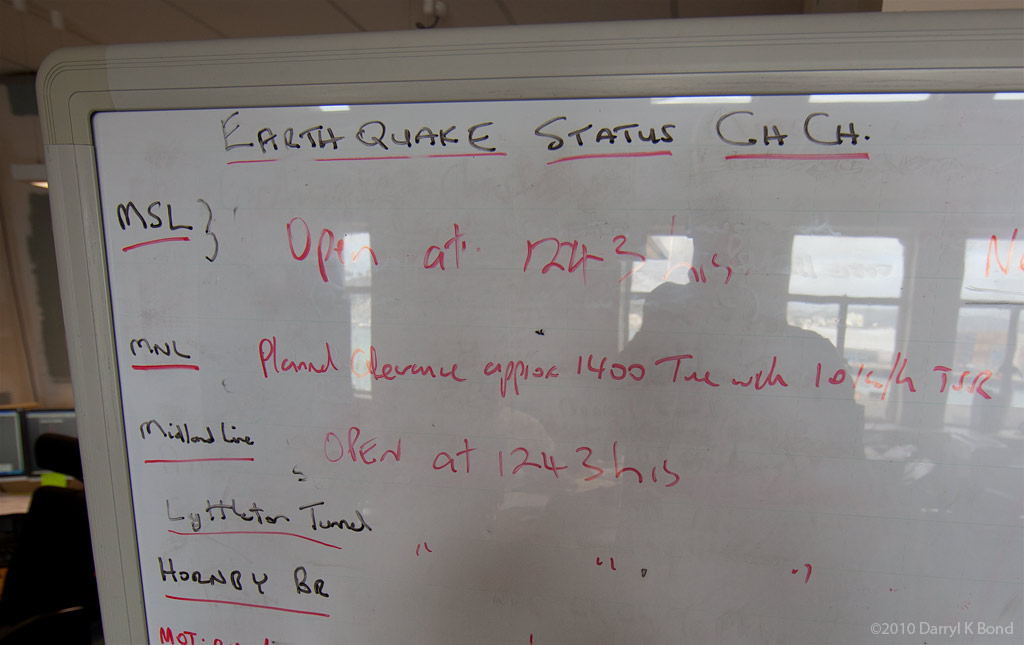 EARTHQUAKE STATUS CHCH.
MSL } Open at 1243 hrs
MNL Planned Clearance approx 1400 Tue with 10 k/h TSR
Midland Line OPEN at 1243 hrs
Lyttleton Tunnel
" " "
HORNBY BR
©2010 Darryl K Bond